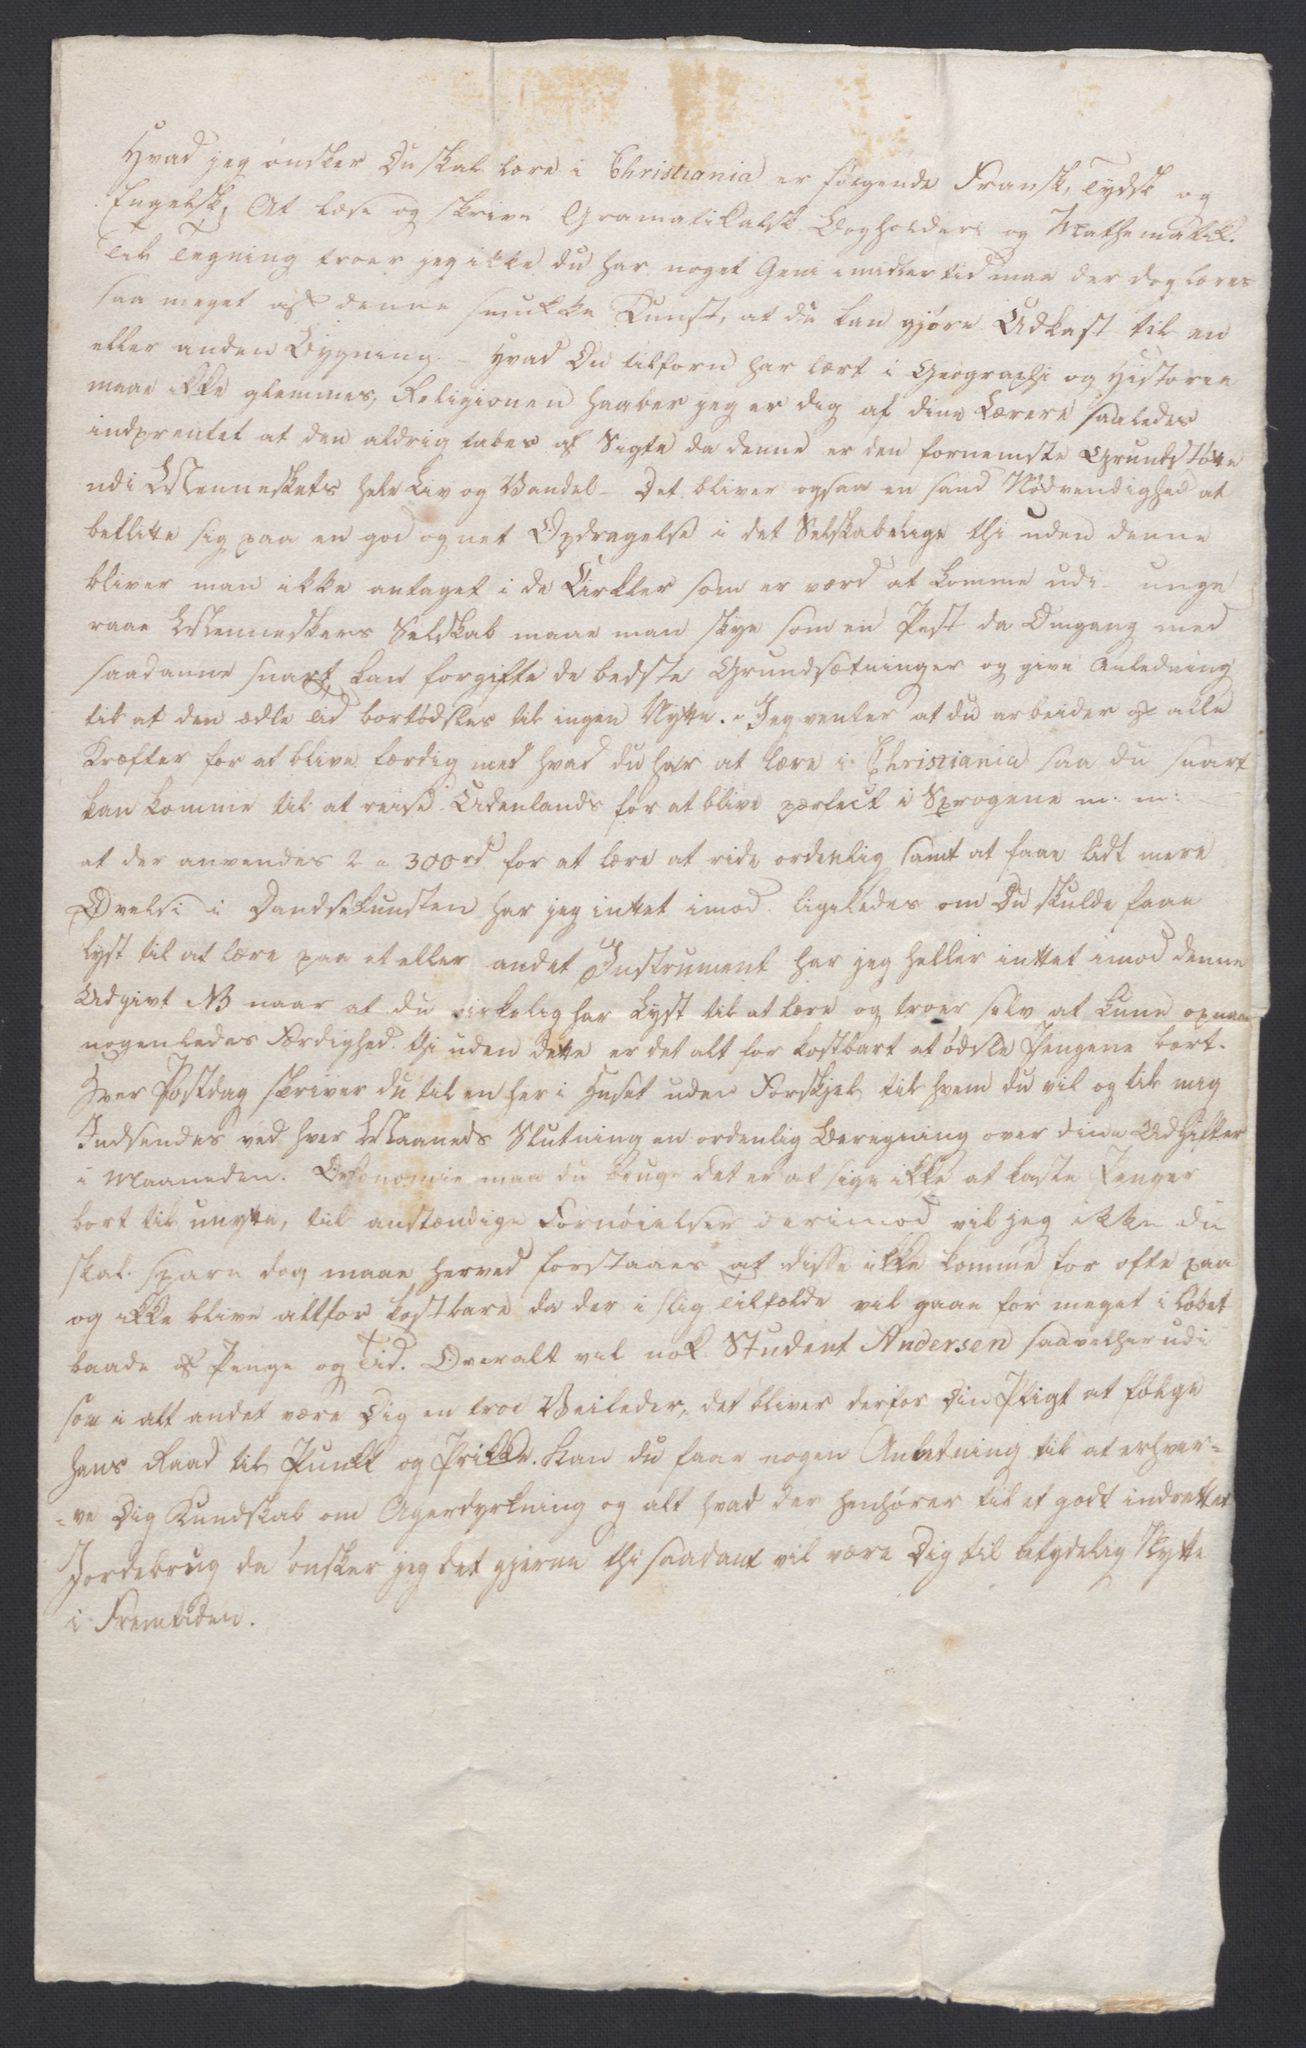 Hvad jeg ønsker Du skal lære i Christiania er følgende Fransk, Tydsk og
Engelsk, At læse og skrive Gramatikalsk Bogholderi og Mathematik.
Til Tegning troer jeg ikke du har noget Geni imidlertid maa der dog læres
saa meget af denne smukke Kunst, at du kan gjøre Udkast til en
eller anden Bygning. - Hvad Du tilforn har lært i Geographi og Historie
maae ikke glemmes, Religionen haaber jeg er dig af dine Lærere saaledes
indprentet at den aldrig tabes af Sigte da denne er den fornemste Grundstøtte
udi Menneskets hele Liv og Vandel - Det bliver ogsaa en sand Nødvendighed at
beflitte sig paa en god og net Opdragelse i det Selskabelige thi uden denne
bliver man ikke antaget i de Cirkler som er værd at komme udi - unge
raae Menneskers Selskab maae man skye som en Pest da Omgang med
saadanne snart kan forgifte de bedste Grundsætninger og give Anledning
til at den ædle Tid bortødsles til ingen Nytte. - Jeg venter at du arbeider af alle
Kræfter for at blive færdig med hvad du har at lære i Christiania saa du snart
kan komme til at reise Udenlands for at blive perfect i Sprogene m: m:
at der anvendes 2 a 300rd for at lære at ride ordenlig samt at faae lidt mere
Øvelse i Dandsekunsten har jeg intet imod ligeledes om Du skulde faae
Lyst til at lære paa et eller andet Instrument har jeg heller inttet imod denne
Udgivt NB naar at du virkelig har Lyst til at lære og troer selv at kune opnaae
nogenledes Færdighed. thi uden dette er det alt for kostbart at ødsle Pengene bort.
Hver Postdag skriver du til en her i Huset uden Forskjel til hvem du vil og til mig
Indsendes ved hver Maaneds Slutning en ordenlig Beregning over dine Udgifter
i Maaneden. Oekonomie maa du bruge det er at sige ikke at kaste Penger
bort til unytte, til anstændige Fornøielser derimod vil jeg ikke du
skal spare dog maae herved forstaaes at disse ikke komme for ofte paa
og ikke blive altfor kostbare da der i slig Tilfælde vil gaae for meget i Løbet
baade af Penge og Tid. Overalt vil nok Student Andersen saavel herudi
som i alt andet være Dig en troe Veileder, det bliver derfor Din Pligt at følge
hans Raad til Punkt og Prikke. Kan du faae nogen Anledning til at erhver=
=ve Dig Kundskab om Agerdyrkning og alt hvad der henhører til et godt indrettet
Jordebrug da ønsker jeg det gjerne thi saadant vil være Dig til betydelig Nytte
i Fremtiden.